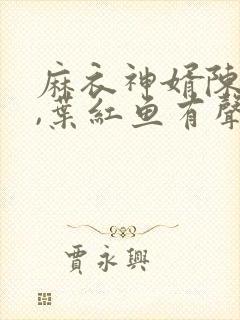 麻衣神婿陳
,葉紅魚有聲
賈永興